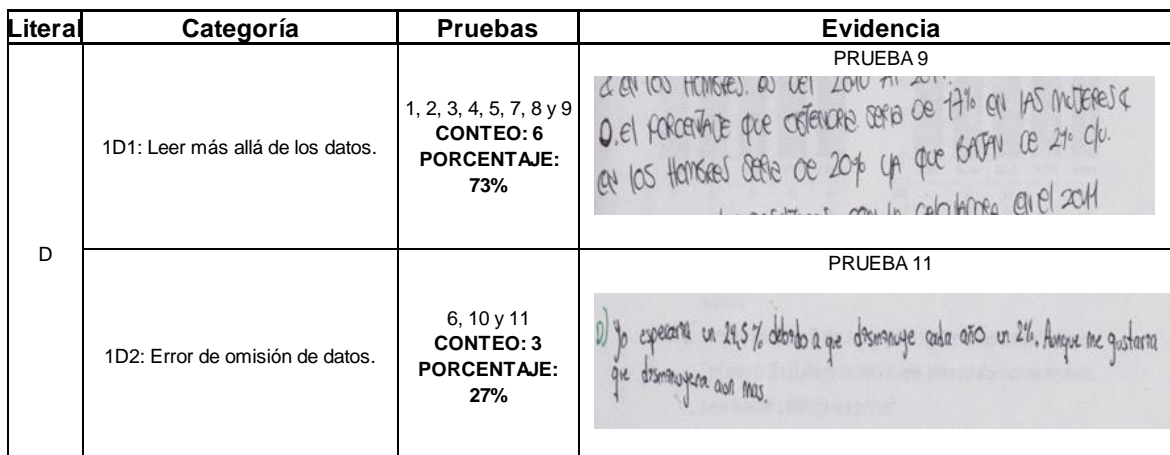 Literal Categoría Pruebas Evidencia
D
1D1: Leer más allá de los datos.
1, 2, 3, 4, 5, 7, 8 y 9
CONTEO: 6
PORCENTAJE:
73%
PRUEBA 9
& EN los HOMBRES. es del 2010 Al
D. el PORCENTAJE que OBTENDRE SERIA DE 17% EN LAS MUJERES &
EN los HOMBRES SERIA DE 20% YA que BAJAN DE 2% c/u.
con la calculadora en el 2011
1D2: Error de omisión de datos.
6, 10 y 11
CONTEO: 3
PORCENTAJE:
27%
PRUEBA 11
D) Yo esperaria un 24,5% debido a que disminuye cada año un 2%. Aunque me gustaria
que disminuyera aun mas.